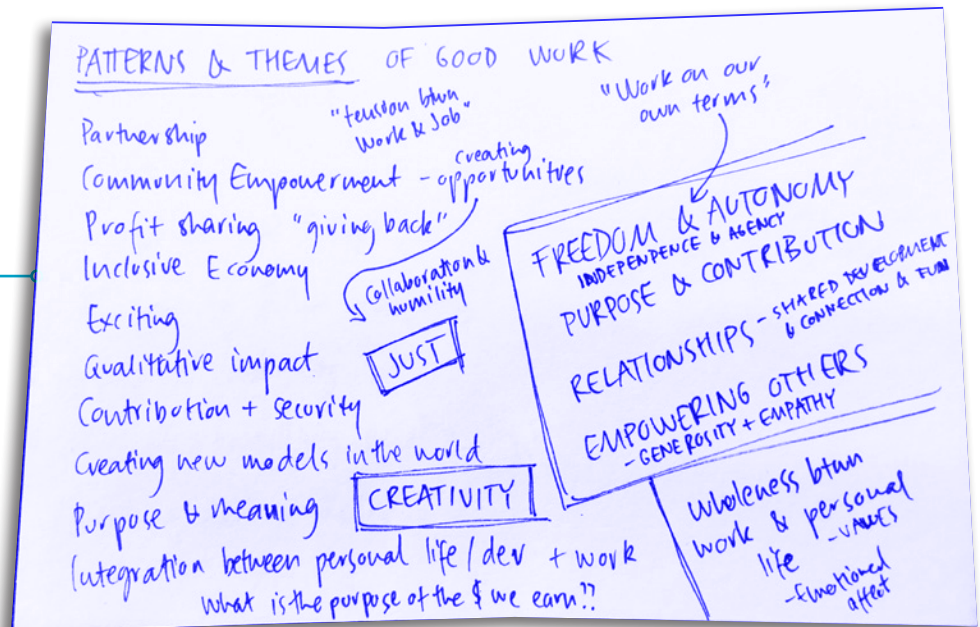 PATTERNS & THEMES OF GOOD WORK
"tension btwn
Work & Job"
"Work on our
own terms"
Partnership
Community Empowerment - creating
opportunities
Profit sharing "giving back"
Inclusive Economy
Collaboration &
humility
Exciting
JUST
Qualitative impact
Contribution + security
Creating new models in the world
CREATIVITY
Purpose & meaning
Integration between personal life/dev + work
What is the purpose of the $ we earn??
FREEDOM & AUTONOMY
INDEPENDENCE & AGENCY
PURPOSE & CONTRIBUTION
RELATIONSHIPS - SHARED DEVELOPMENT
& CONNECTION & FUN
EMPOWERING OTHERS
- GENEROSITY + EMPATHY
Wholeness btwn
work & personal
life - VALUES
- Emotional
affect